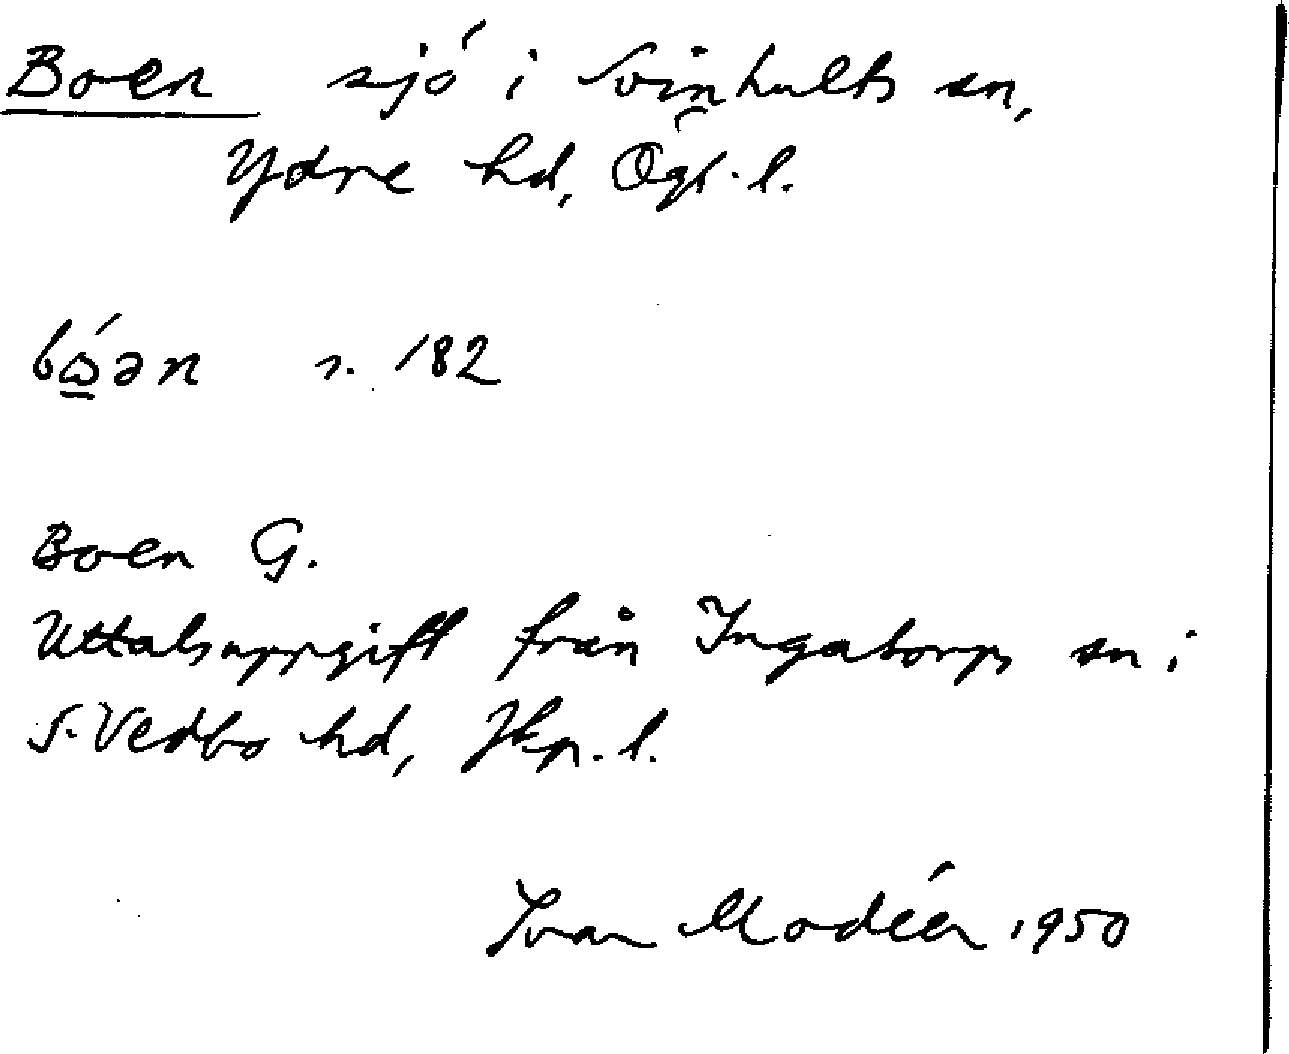 Boen sjö i Svinhults sn,
Ydre hd, Ögl. l.
bώ̲ən s. 182
Boen G.
Uttalsuppgift från Ingatorps sn i
S. Vedbo hd, Jkp. l.
Ivar Modéer 1950